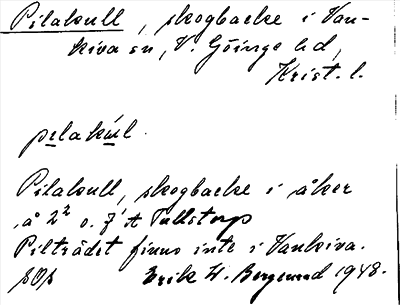 Pilakull, skogbacke i Van-
kiva sn, V. Göinge hd,
Krist. l.
pelakúl.
Pilakull, skogbacke i åker
å 2² o. f. A Tullstorp
Pilträdet finns inte i Vankiva.
Erik W. Bergemad 1948.